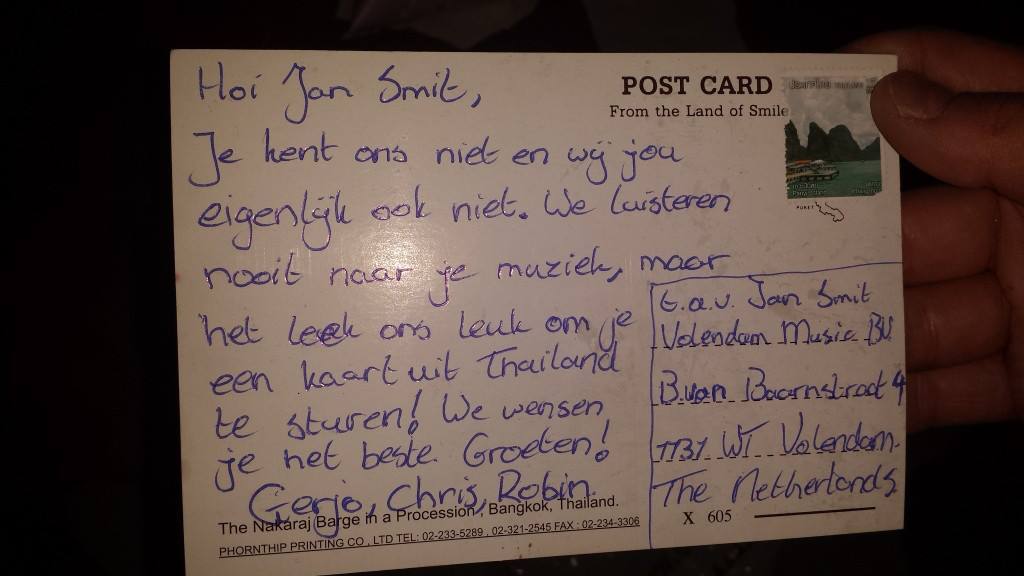 Hoi Jan Smit,
Je kent ons niet en wij jou
eigenlijk ook niet. We luisteren
nooit naar je muziek, maar
het leek ons leuk om je
een kaart uit Thailand
te sturen! We wensen
je het beste. Groeten!
Gerjo, Chris, Robin.
POST CARD
From the Land of Smile
t.a.v. Jan Smit
Volendam Music BV
B. van Baarnstraat 4
1131 WT Volendam.
The Netherlands
The Nakaraj Barge in a Procession, Bangkok, Thailand.
PHORNTHIP PRINTING CO., LTD TEL: 02-233-5289, 02-321-2545 FAX : 02-234-3306
X 605